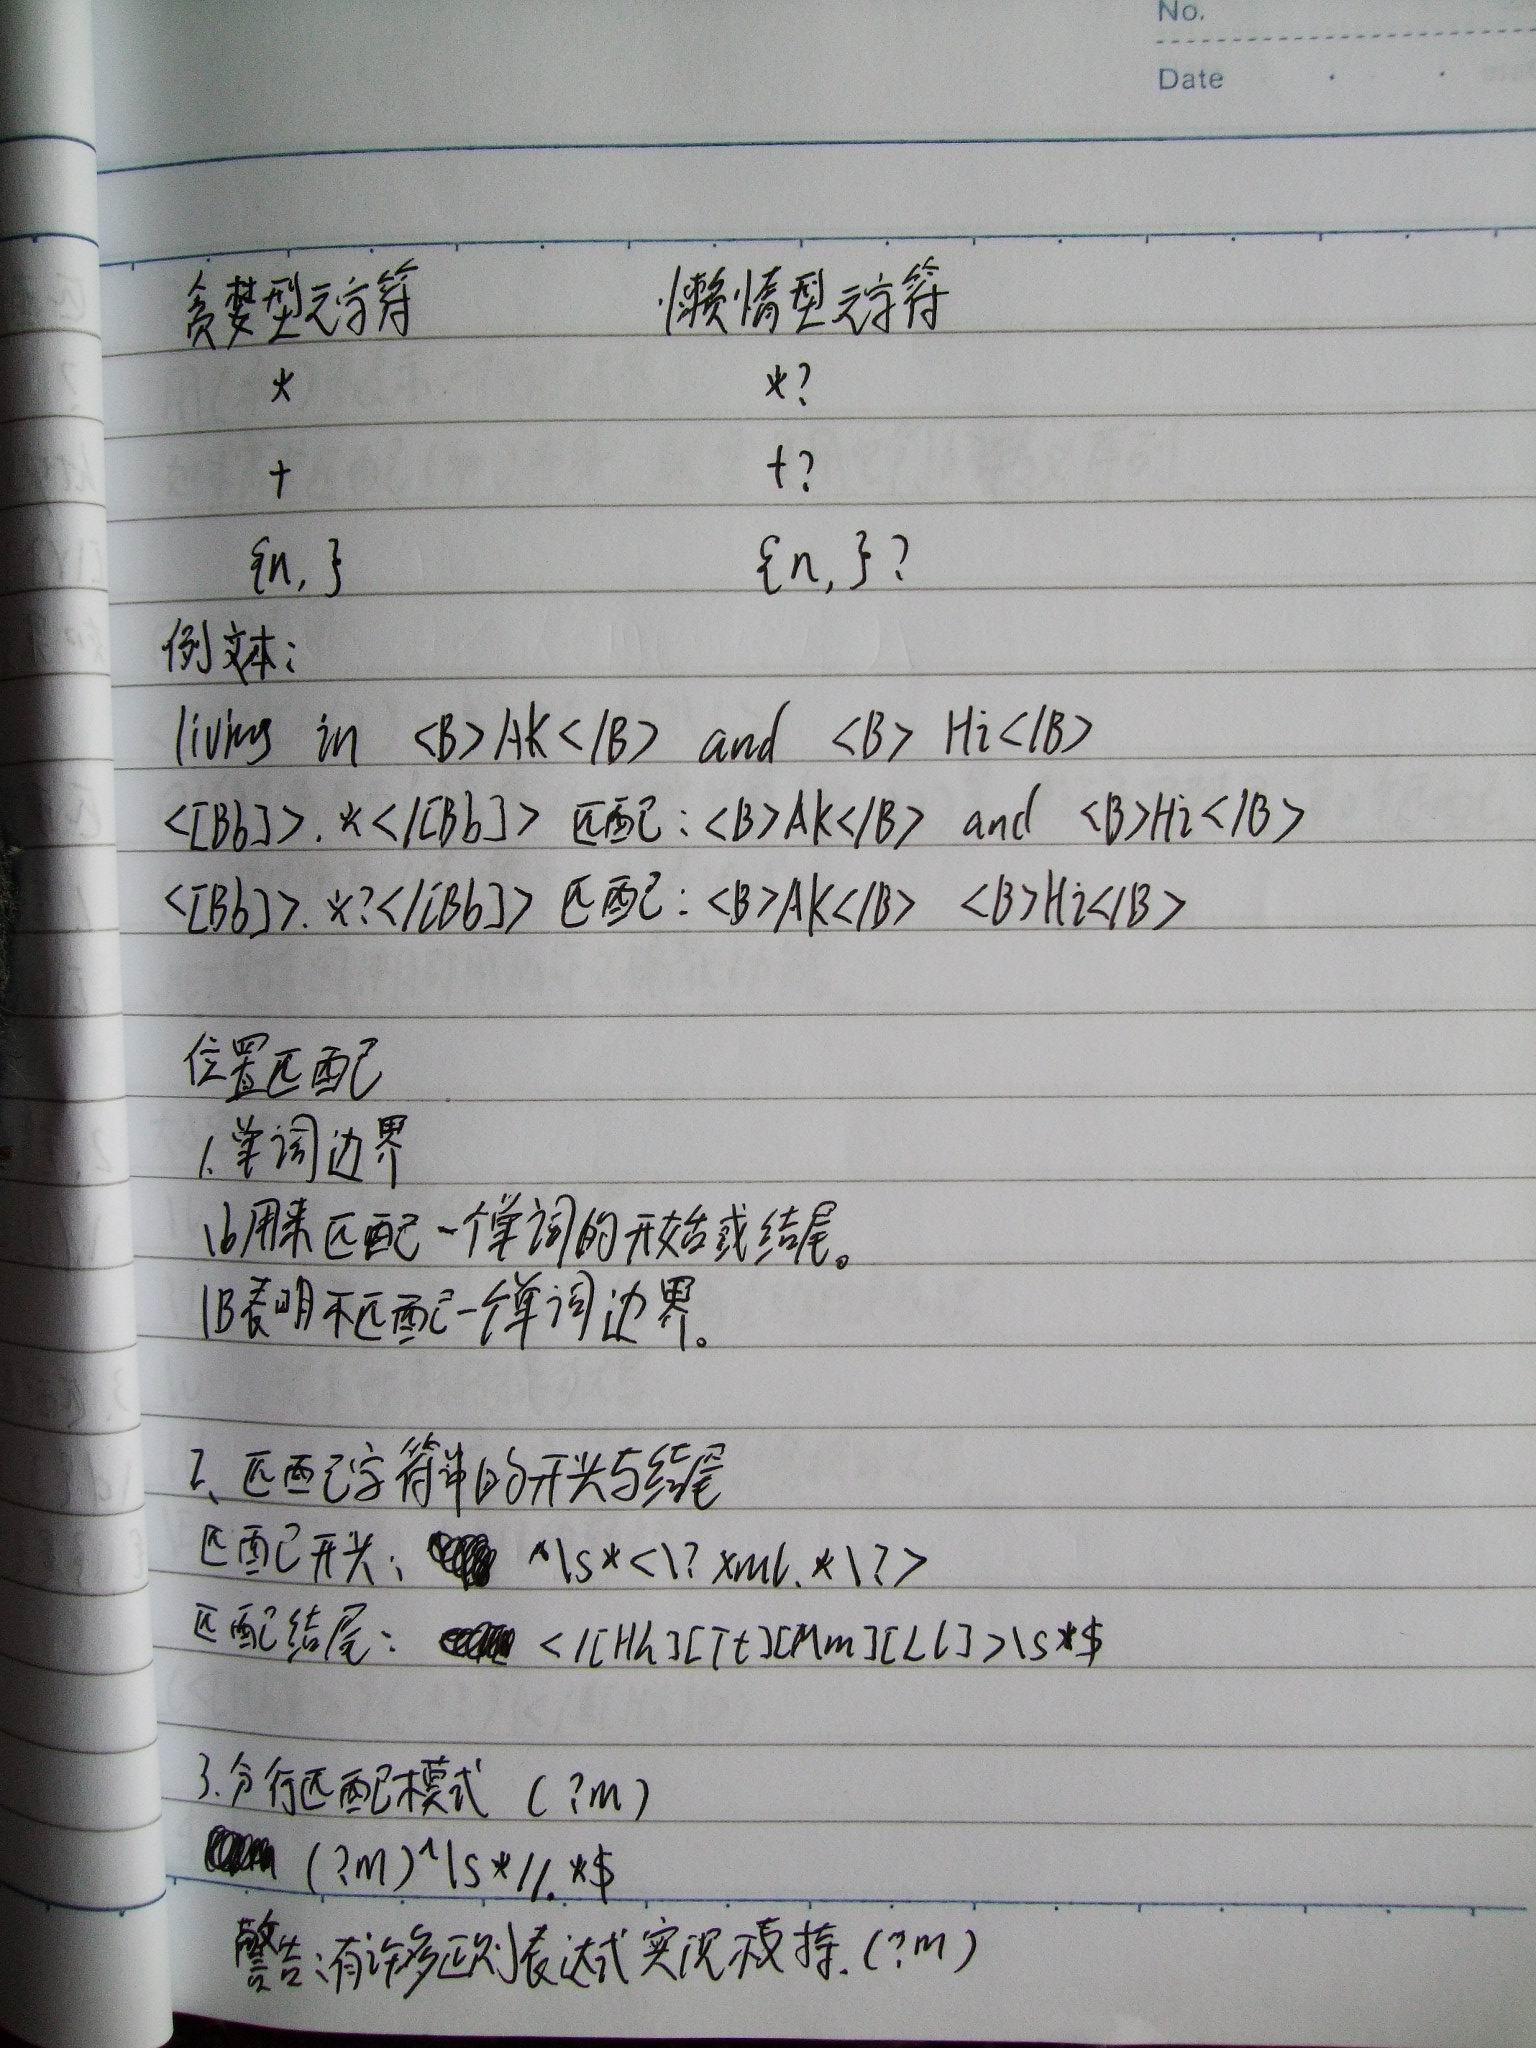 No.
Date
贪婪型元字符 懒惰型元字符
* *?
+ +?
{n,} {n,}?
例文本:
living in <B>AK</B> and <B> Hi</B>
<[Bb]>.*</[Bb]> 匹配:<B>AK</B> and <B>Hi</B>
<[Bb]>.*?</[Bb]> 匹配:<B>AK</B> <B>Hi</B>
位置匹配
1.单词边界
\b用来匹配一个单词的开始或结尾。
\B表明不匹配一个单词边界。
2、匹配字符串的开头与结尾
匹配开头: ^\s*<\?xml.*\?>
匹配结尾: </[Hh][Tt][Mm][Ll]>\s*$
3.分行匹配模式 (?m)
(?m)^\s*//.*$
警告:有许多正则表达式实现不支持.(?m)